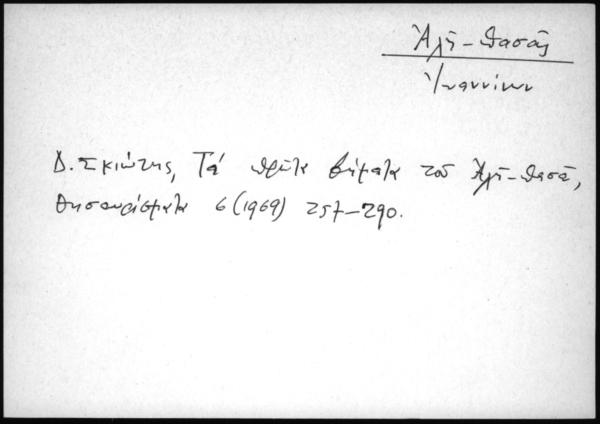 Ἀλῆ-Πασᾶς
Ἰωαννίνων
Δ. Σκιώτης, Τά πρῶτα βήματα τοῦ Ἀλῆ-Πασᾶ,
Θησαυρίσματα 6 (1969) 257-290.